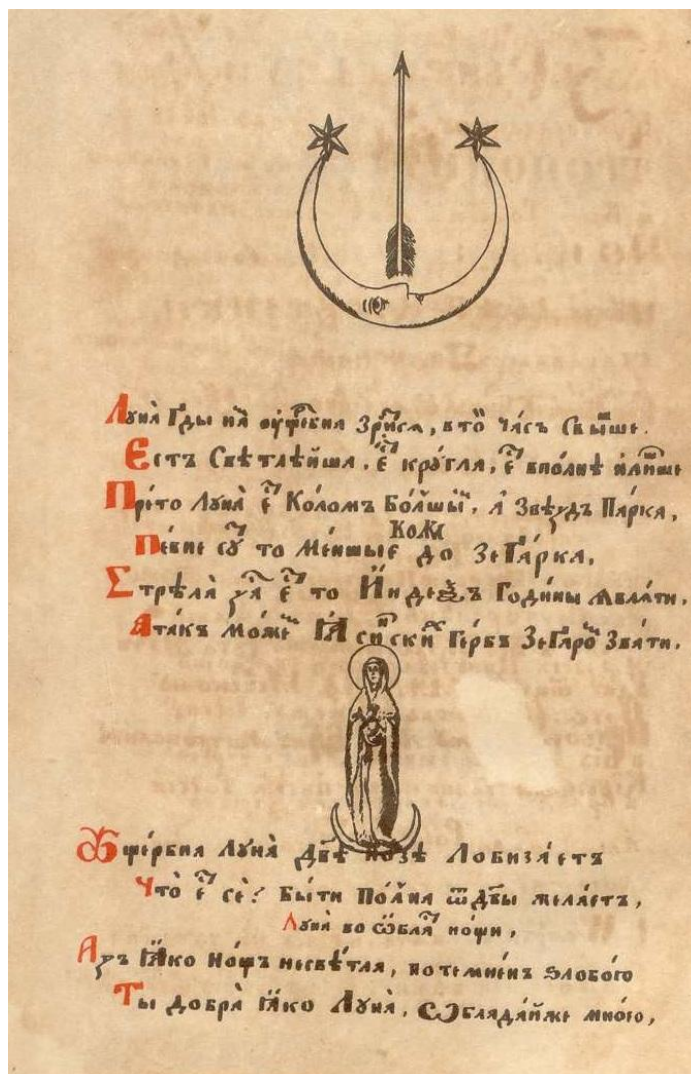 Луна̀ Гды на̀ ꙋще́рбна Зри́тсѧ, в то́й ча́съ Свы́ше.
Естъ Свѣтлѣ́йша, е́ст кру́гла, е́ст впо́лнѣ
Пре́то Луна̀ е́ст Коло́мъ Бо́лшый, а̀ Звѣздъ Па́рка,
Пе́вне су́т то Ме́ншые Кола до Зеґа́рка,
Стрѣла̀ за́с е́ст то И́ндеѯъ Годи́ны ꙗвлѧ́ти,
Ата́къ мо́жем Ге́рбъ Зеґаро́м Зва́ти.
Ѹще́рбна Луна̀ Дв҃ѣ но́зѣ Лобиза́етъ
Что̀ е́ст се́? Бы́ти По́лна ѿ Дв҃ы жела́етъ,
Луна во ѡ́бласт но́щи,
Азъ Ꙗ́ко Но́щъ несвѣ́тла, потемне́нъ ѕло́бою
Ты добра̀ ꙗ́ко Луна̀, Ѡблада́йже мно́ю,